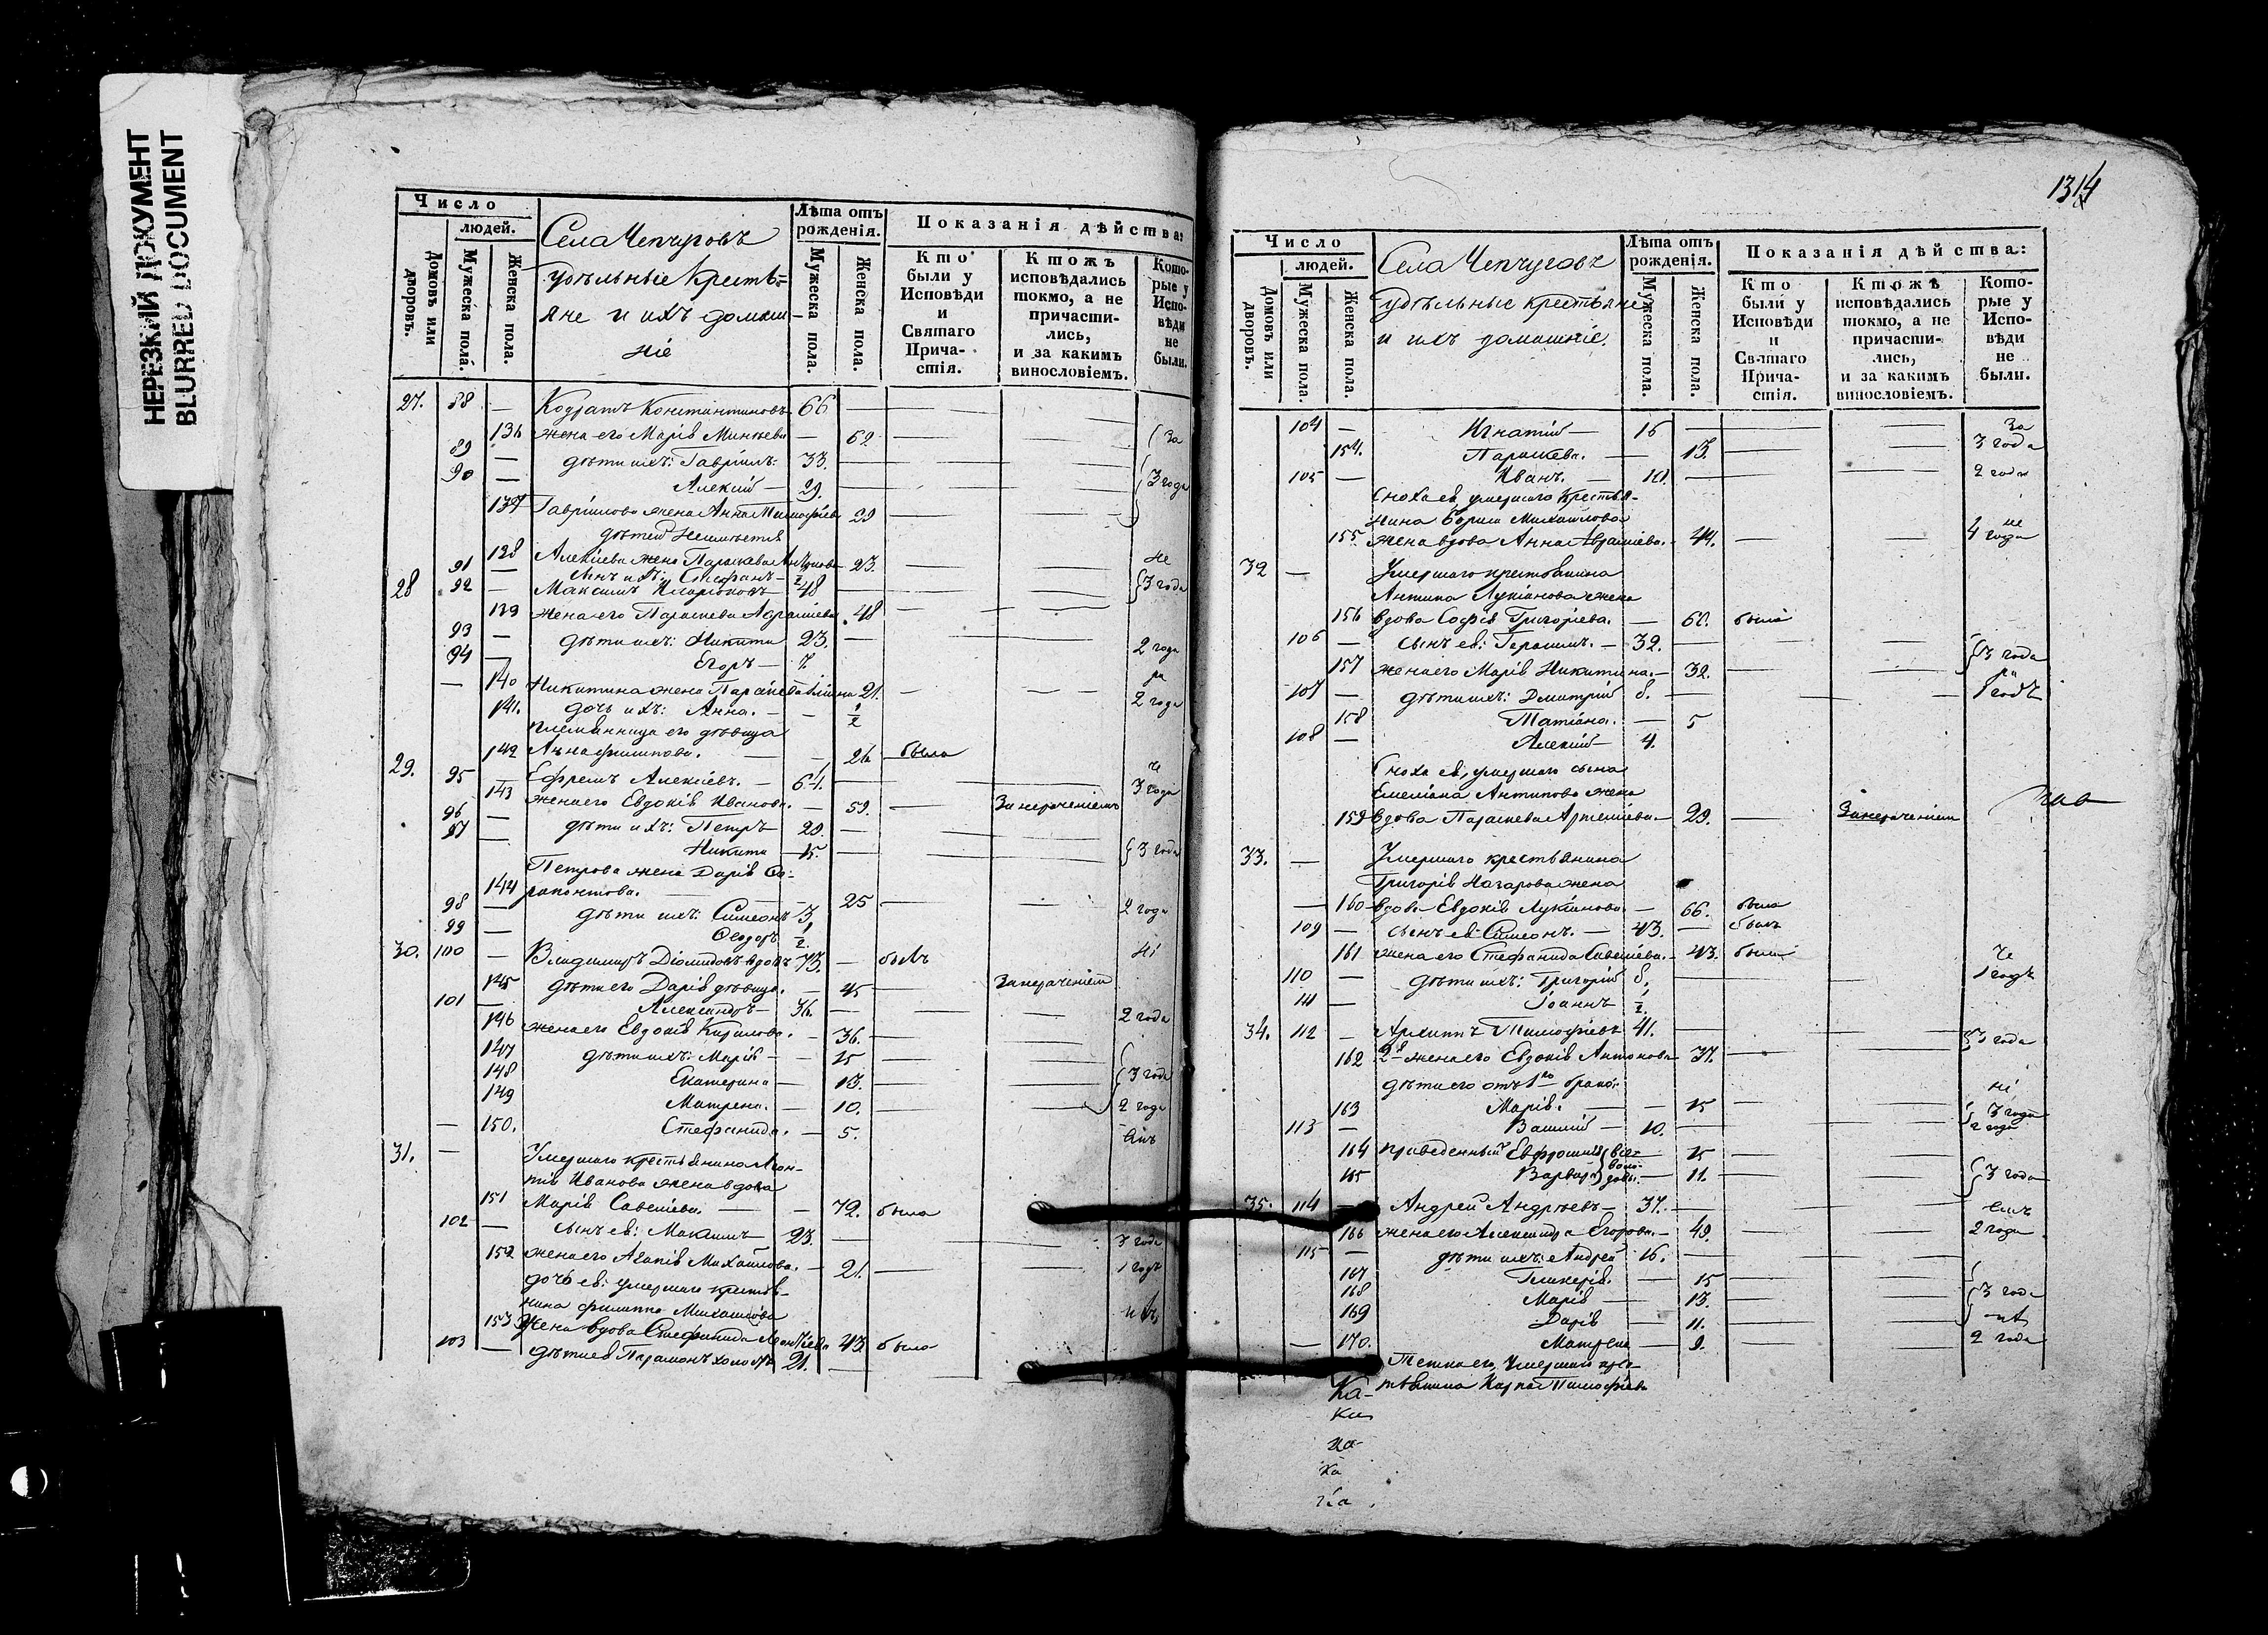 НЕРЕЗКИЙ ДОКУМЕНТ
BLURRED DOCUMENT
Число
людей.
Домовъ или дворовъ.
Мужеска пола.
Женска пола.
Села Чепчуговъ
удѣльные Крестья=
яне и ихъ домаш-
ніе
Лѣта отъ рожденія.
Мужеска пола.
Женска пола.
Показанія дѣйства:
Кто были у Исповѣди и Святаго Причастія.
Ктожъ исповѣдались токмо, а не причастились, и за какимъ винословіемъ.
Которые у Исповѣди не были.
27. 88 — Кодратъ Константиновъ 66 —
136 жена его Марія — 62
89 — дѣти ихъ: Гавріилъ. 33. — За
90 — Алексій — 29. — 3 года
137 Гаврилова жена Анна Тимофѣева 29
дѣтей неимѣетъ
138 Алексіева жена Параскева 23.
91 — сынъ ихъ: Стефанъ — 1/2
28 92 — Максимъ 48 — 3 года
139 жена его Параскева 48
93 — дѣти ихъ: Никита 23. —
94 — Егоръ — 7. 2 года
— 140 Никитина жена 21.
141. дочь ихъ: Анна. — — 1/2 2 года
племянница его дѣвица
142 Анна Филипова. — — 26 была
29. 95 Ефремъ Алексіевъ. — 64. —
143 жена его Евдокія Иванова. — 59. — За нераченіемъ 3 года
96 — дѣти ихъ: Петръ 29. —
97 — Никита 15. — 3 года
Петрова жена Дарія
144 25 —
98 — дѣти ихъ: Симеонъ 3, 2 года
99 — Ѳеодоръ 1/2.
30. 100 — Владимиръ Діомидовъ вдовъ 73. — былъ
145 дѣти его Дарія дѣвица. — 45 За нераченіемъ
101 — Александръ — 36. —
146 жена его Евдокія Кирилова. — 36. — 2 года
147 дѣти ихъ: Марія — — 15 —
148 Екатерина — 13. — 3 года
149 Матрена. — 10. — 2 года
— 150. Стефанида. — 5.
31. — Умершаго крестьянина Леон-
тія Иванова жена вдова
151 Марія Савельева. — — 72. была
102 — сынъ ея: Максимъ — 23. — 3 года
152 жена его Агапія Михайлова. — 21. — 1 годъ
дочь ея: умершаго крестья-
нина Филиппа Михайлова
153 жена вдова Стефанида Леонтіева 43 была
103 — дѣти ея Парамонъ холостъ 21. —
1314
Число
людей.
Домовъ или дворовъ.
Мужеска пола.
Женска пола.
Села Чепчуговъ
удѣльные крестьяне
и ихъ домашніе.
Лѣта отъ рожденія.
Мужеска пола.
Женска пола.
Показанія дѣйства:
Кто были у Исповѣди и Святаго Причастія.
Ктожъ исповѣдались токмо, а не причастились, и за какимъ винословіемъ.
Которые у Исповѣди не были.
104 — Игнатій — 16 — За
154. Параскева. — 13. — 3 года
105 — Иванъ. — 10. — 2 года
Сноха ея умершаго Крестья-
нина Михайлова
155 жена вдова Анна — 44. — 4 года
32 — Умершаго крестьянина
Антипа Лукіанова жена
156 вдова Софія Григоріева. — 60. была
106 — сынъ ея: Герасимъ. — 32. —
157 жена его Марія Никитина. — 32. — 3 года
107 — дѣти ихъ: Дмитрій 8. — 1 годъ
158 Татіана. — 5
108 — Алексій — 4.
Сноха ея, умершаго сына
Емеліана Антипова жена
159 вдова Параскева — 29. — За нераченіемъ
33. — Умершаго крестьянина
Григорія Назарова жена
— 160 вдова Евдокія Лукіанова — 66. была
109 — сынъ ея Симеонъ. — 43. — былъ
161 жена его Стефанида Савельева. — 43. была
110 — дѣти ихъ: Григорій 8. 1 годъ
111 — Іоаннъ 1/2.
34. 112 — Архипъ Тимофѣевъ 41. —
162 2я жена его Евдокія Антонова 37. — 3 года
дѣти его отъ 1го брака:
163 Марія. — — 15 — 3 года
113 — Василій — 10. — 2 года
164 — 15 —
165 Варвара — 11. — 3 года
35. 114 — Андрей Андреевъ — 37. —
166 жена его Александра Егорова — 49. — 2 года
115 — дѣти ихъ: Андрей 16. —
167 Гликерія. — 15 —
168 Марія — 13. — 3 года
169 Дарія — 11. —
— 170. Матрена — 9. — 2 года
Тетка его, Умершаго кре-
стьянина Карпа Тимофѣева
Ка-